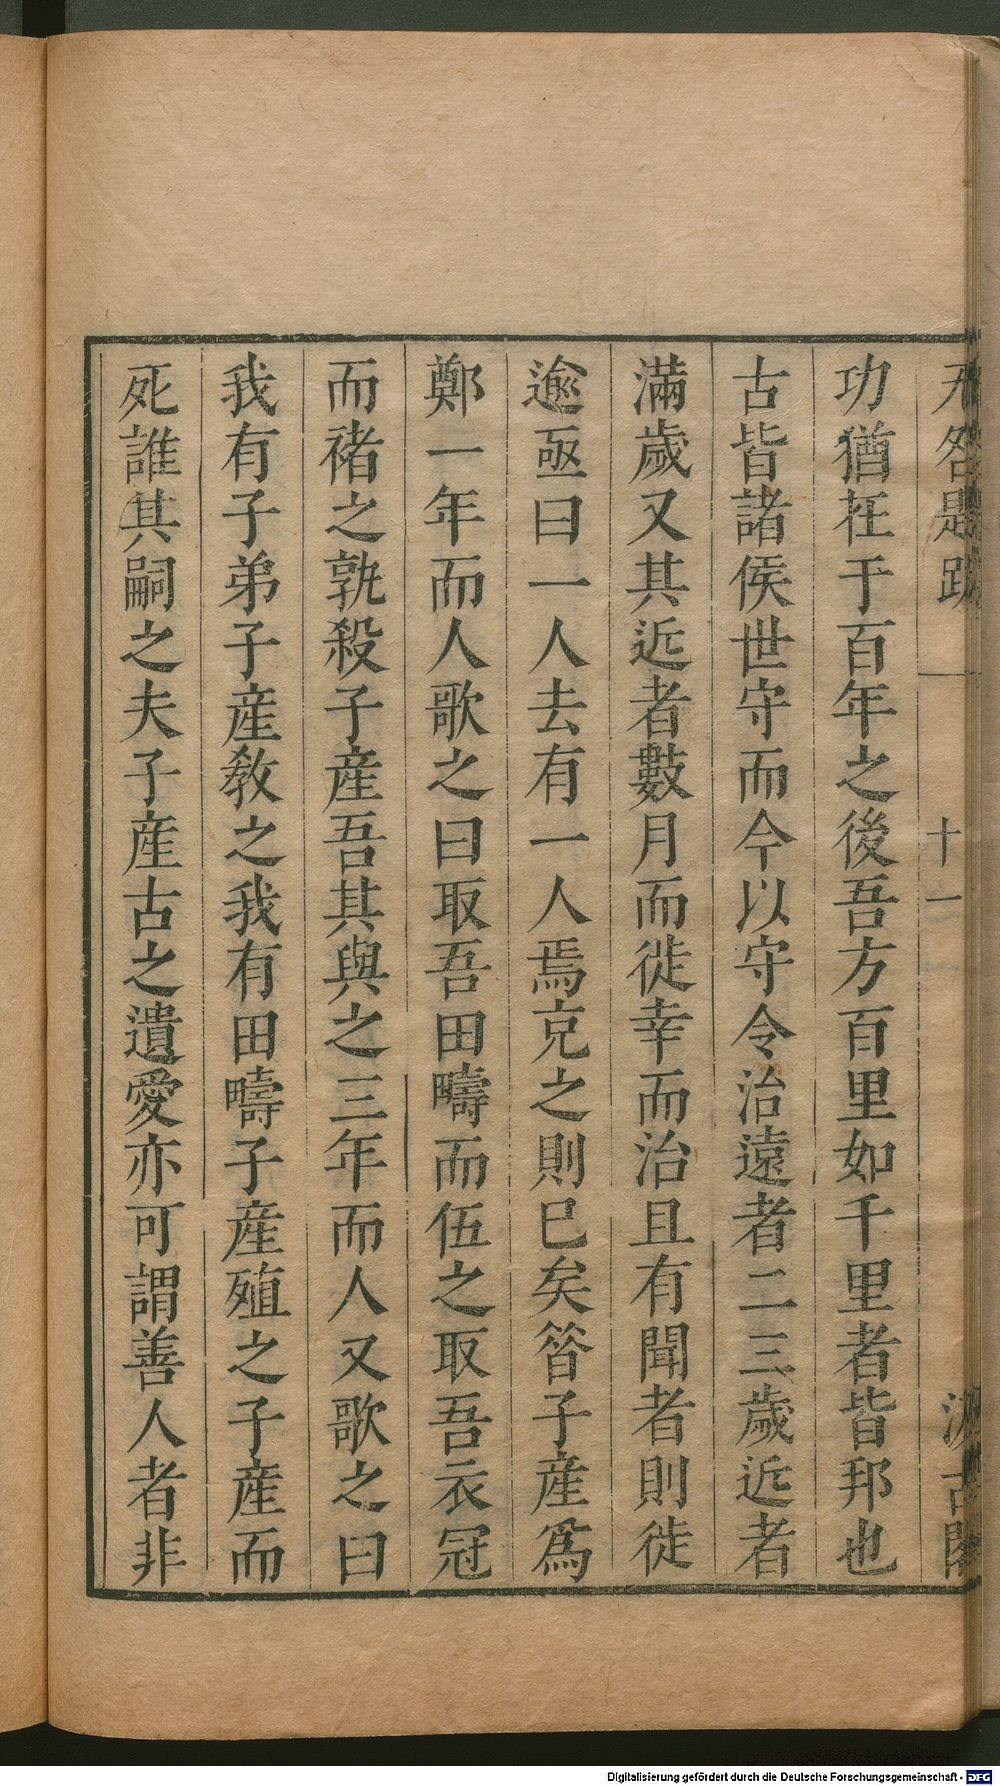 无咎題跋 十一 汲古閣
功猶在千百年之後吾方百里如千里者皆邦也
古皆諸侯世守而今以守令治遠者二三歲近者
滿歲又其近者數月而徙幸而治且有聞者則徙
逾亟曰一人去有一人焉克之則已矣昝子產爲
鄭一年而人歌之曰取吾田疇而伍之取吾衣冠
而褚之孰殺子產吾其與之三年而人又歌之曰
我有子弟子產教之我有田疇子產殖之子產而
死誰其嗣之夫子產古之遺愛亦可謂善人者非
Digitalisierung gefördert durch die Deutsche Forschungsgemeinschaft - DFG